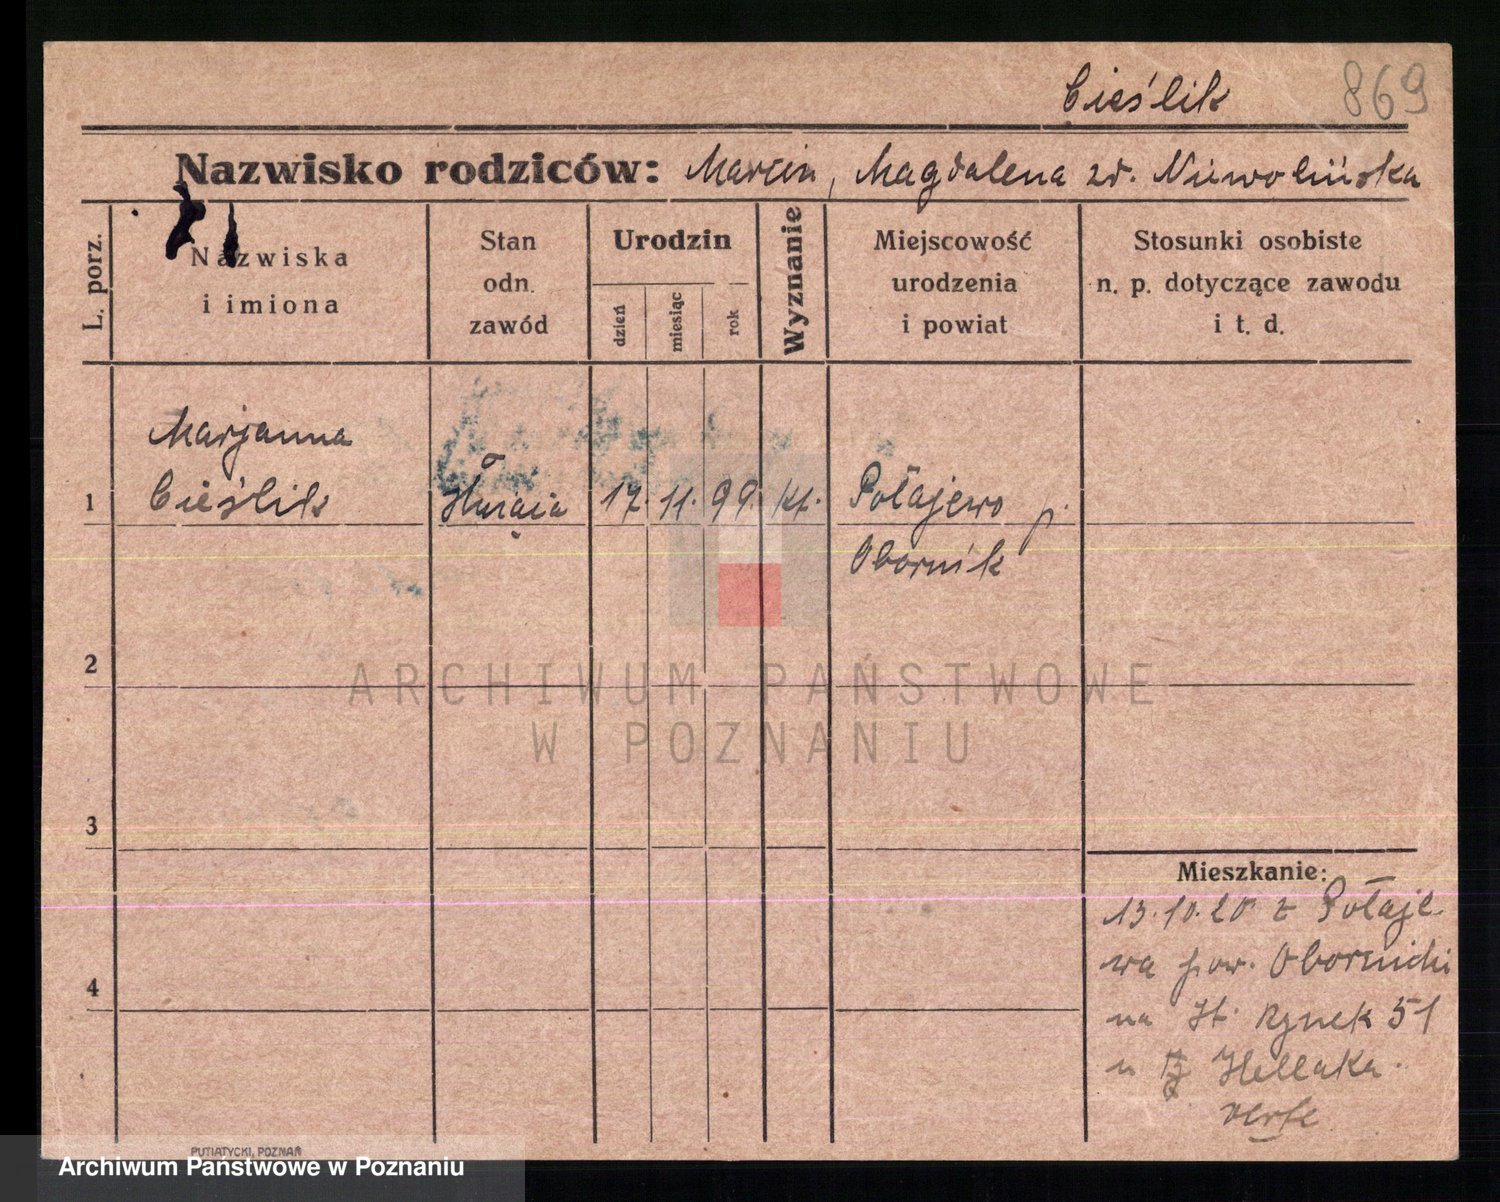 Cieślik 869
Nazwisko rodziców: Marcin, Magdalena zd. Niewolińska
L. porz.
Nazwiska
i imiona
Stan
odn.
zawód
Urodzin
dzień
miesiąc
rok
Wyznanie
Miejscowość
urodzenia
i powiat
Stosunki osobiste
n. p. dotyczące zawodu
i t. d.
Marjanna
1 Cieślik 17. 11. 99. kt. Połajewo p.
Obornik
2
3
4
Mieszkanie:
13.10.20 z Połaje
wa pow. Obornicki
na St. Rynek 51
u Hellaka.
verte
ARCHIWUM PAŃSTWOWE
W POZNANIU
PUTIATYCKI, POZNAŃ
Archiwum Państwowe w Poznaniu